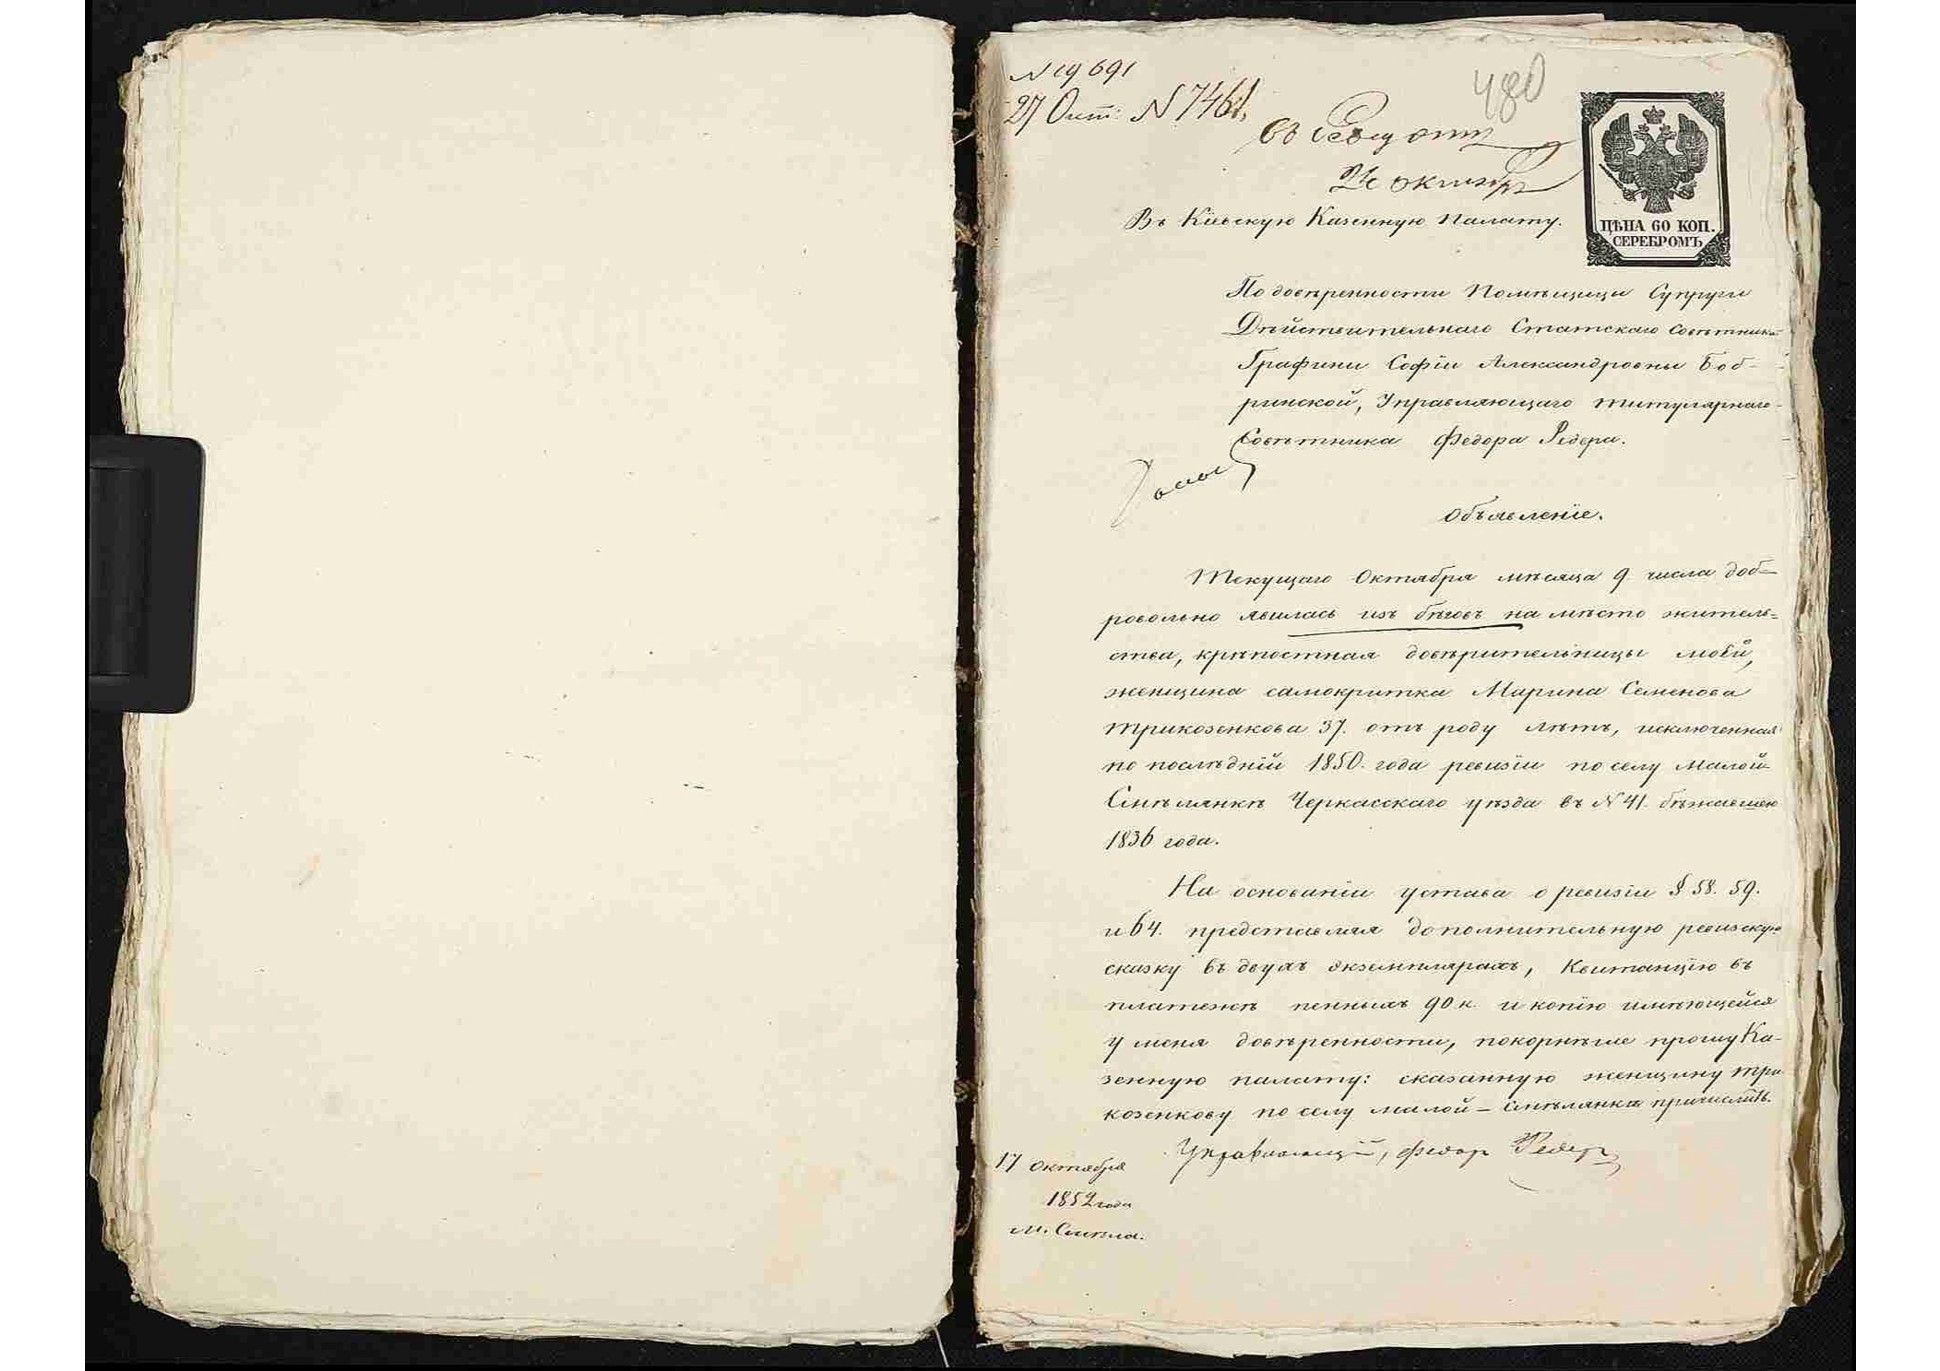 N 19691
27 Окт: N 7461.
480
24 октября
ЦѢНА 60 КОП.
СЕРЕБРОМЪ
Въ Кіевскую Казенную Палату.
По довѣренности Помѣщицы Супруги
Дѣйствительнаго Статскаго Совѣтника
Графини Софіи Александровны Боб-
ринской, Управляющаго титулярнаго
Совѣтника Федора Редера.
Объявленіе.
Текущаго Октября мѣсяца 9 числа доб=
ровольно явилась изъ бѣговъ на мѣсто житель=
ства, крѣпостная довѣрительницы моей,
женщина самокритка Марина Семенова
Трикозенкова 37. отъ роду лѣтъ, исключенная
по послѣдній 1850. года ревизіи по селу Малой
Смѣлянкѣ Черкасскаго уѣзда въ N 41. бѣжавшею
1836 года.
На основаніи устава о ревизіи § 58. 59.
и 64. представляя дополнительную ревизскую
сказку въ двухъ экземплярахъ, Квитанцію въ
платежѣ пенныхъ 90 к. и копію имѣющейся
у меня довѣренности, покорнѣйше прошу Ка-
зенную палату: сказанную женщину Три-
козенкову по селу малой – Смѣлянкѣ причислить.
Управляющій, Федор Редер
17 Октября
1852 года
м. Смѣла.